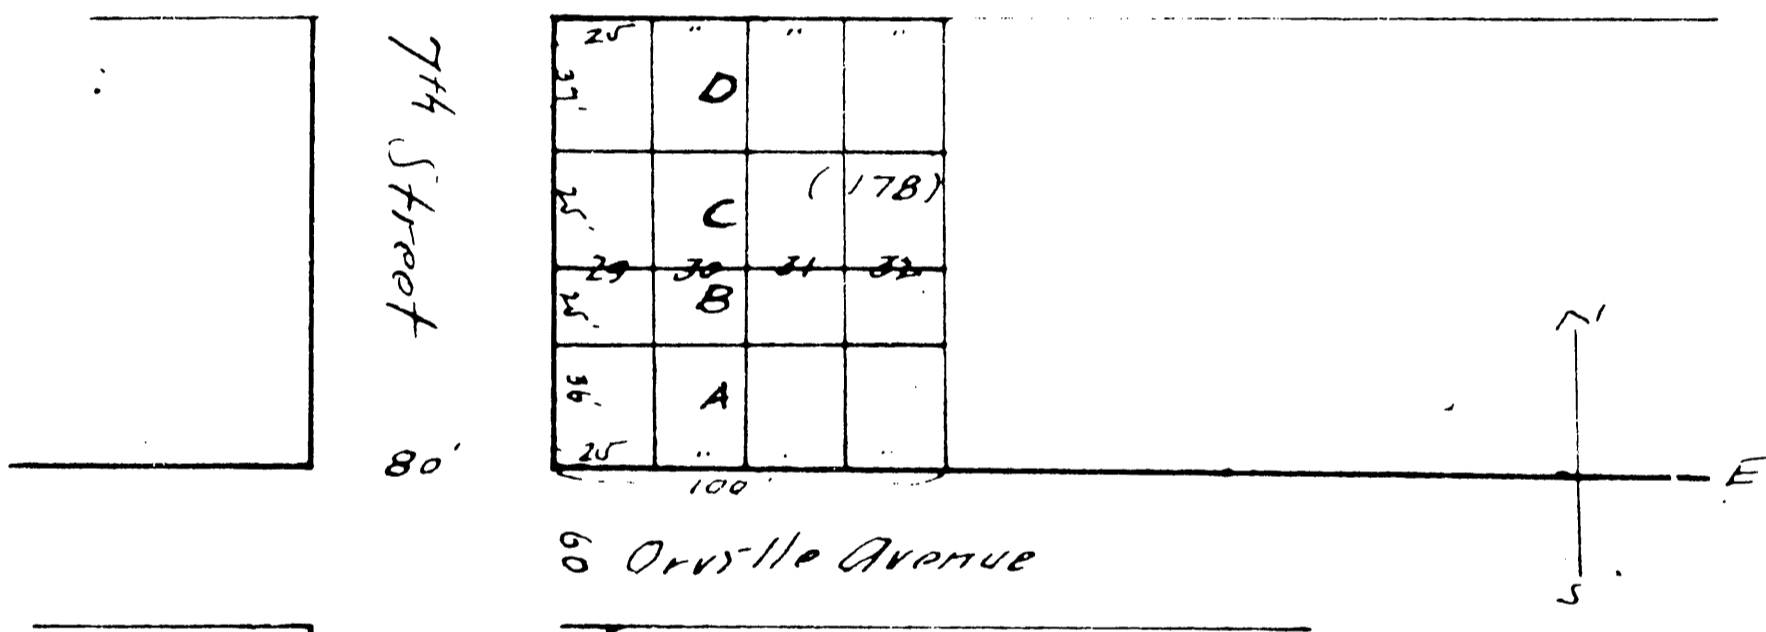 7th Street
80'
25 " " "
37'
D
25'
C
(178)
29 30 31 32
25'
B
36'
A
25 " " "
100'
60 Orville Avenue
E
S